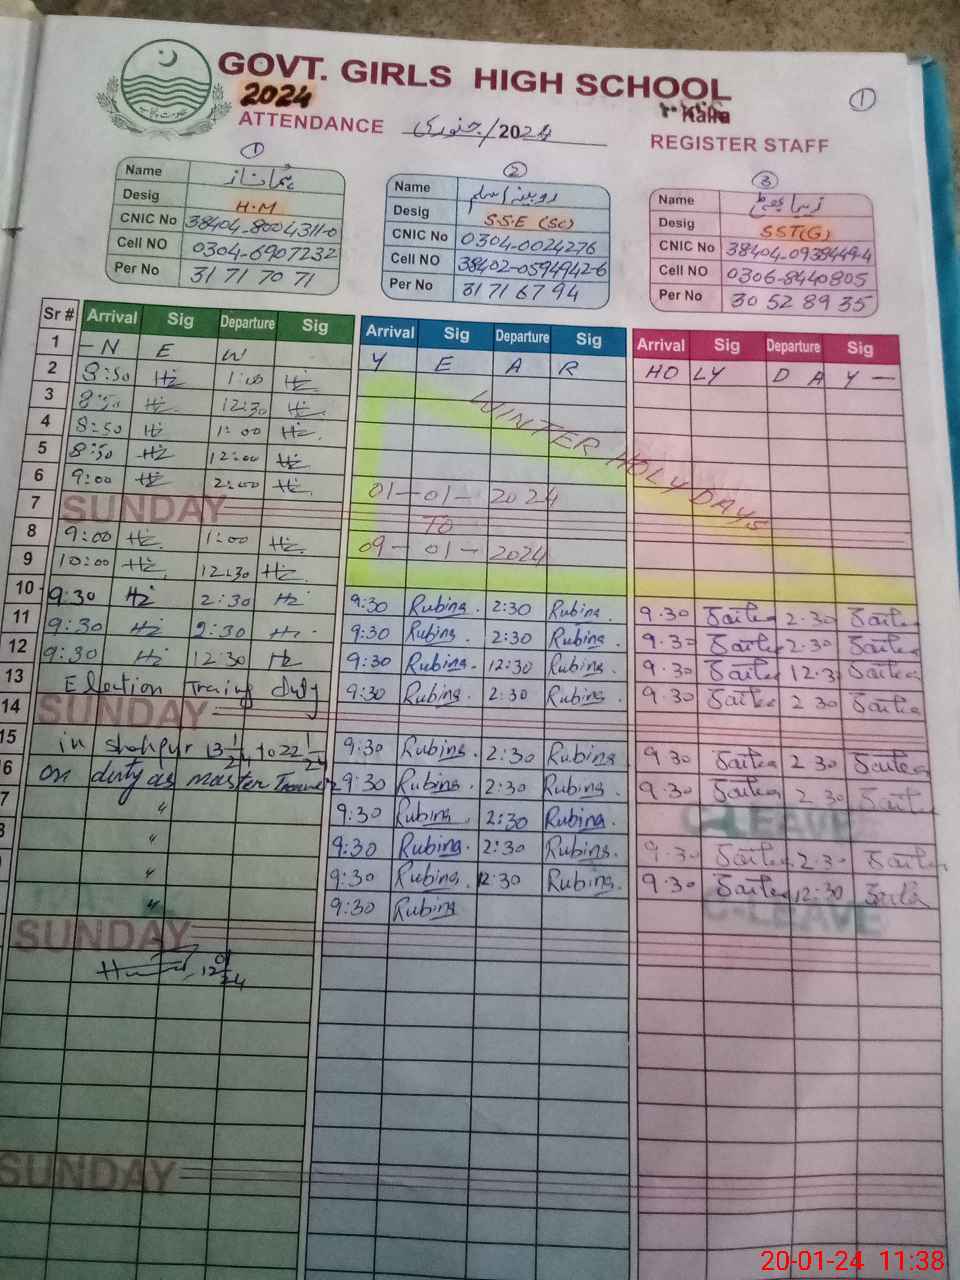 GOVT. GIRLS HIGH SCHOOL
2024
ATTENDANCE جنوری/2024
REGISTER STAFF
①
① ② ③
Name
Desig H.M
CNIC No 38404-8004311-0
Cell NO 0304-6907232
Per No 31 71 70 71
Name روبینہ اسلم
Desig S.S.E (Sc)
CNIC No 0304-0024276
Cell NO 38402-0594942-6
Per No 31 71 67 94
Name
Desig SST(G)
CNIC No 38404-0938449-4
Cell NO 0306-8440805
Per No 30 52 89 35
Sr # Arrival Sig Departure Sig Arrival Sig Departure Sig Arrival Sig Departure Sig
1 - N E W Y E A R HO LY D A Y -
2 8:50 Hz 1:00 Hz
3 8:50 Hz 12:30 Hz
WINTER HOLYDAYS
4 8:50 Hz 1:00 Hz
5 8:50 Hz 12:00 Hz
6 9:00 Hz 2:00 Hz 01-01-2024
7 SUNDAY TO
8 9:00 Hz 1:00 Hz 09-01-2024
9 10:00 Hz 12:30 Hz
10 9:30 Hz 2:30 Hz 9:30 Rubina. 2:30 Rubina. 9.30 2.30
11 9:30 Hz 2:30 Hz 9:30 Rubina. 2:30 Rubina. 9.30 2.30
12 9:30 Hz 12:30 Hz 9:30 Rubina. 12:30 Rubina. 9.30 12.30
13 Election Traing duty 9:30 Rubina. 2:30 Rubina. 9.30 2 30
14 SUNDAY
15 in shahpur 13 1/24 to 22 1/24 9:30 Rubina. 2:30 Rubina. 9 30 2 30
16 on duty as master Trainer 9:30 Rubina. 2:30 Rubina. 9.30 2.30
7 " 9:30 Rubina. 2:30 Rubina. C-LEAVE
8 " 9:30 Rubina. 2:30 Rubina. 9.30 2.30
" 9:30 Rubina. 12:30 Rubina. 9.30 12:30
" 9:30 Rubina C-LEAVE
SUNDAY
SUNDAY
20-01-24 11:38